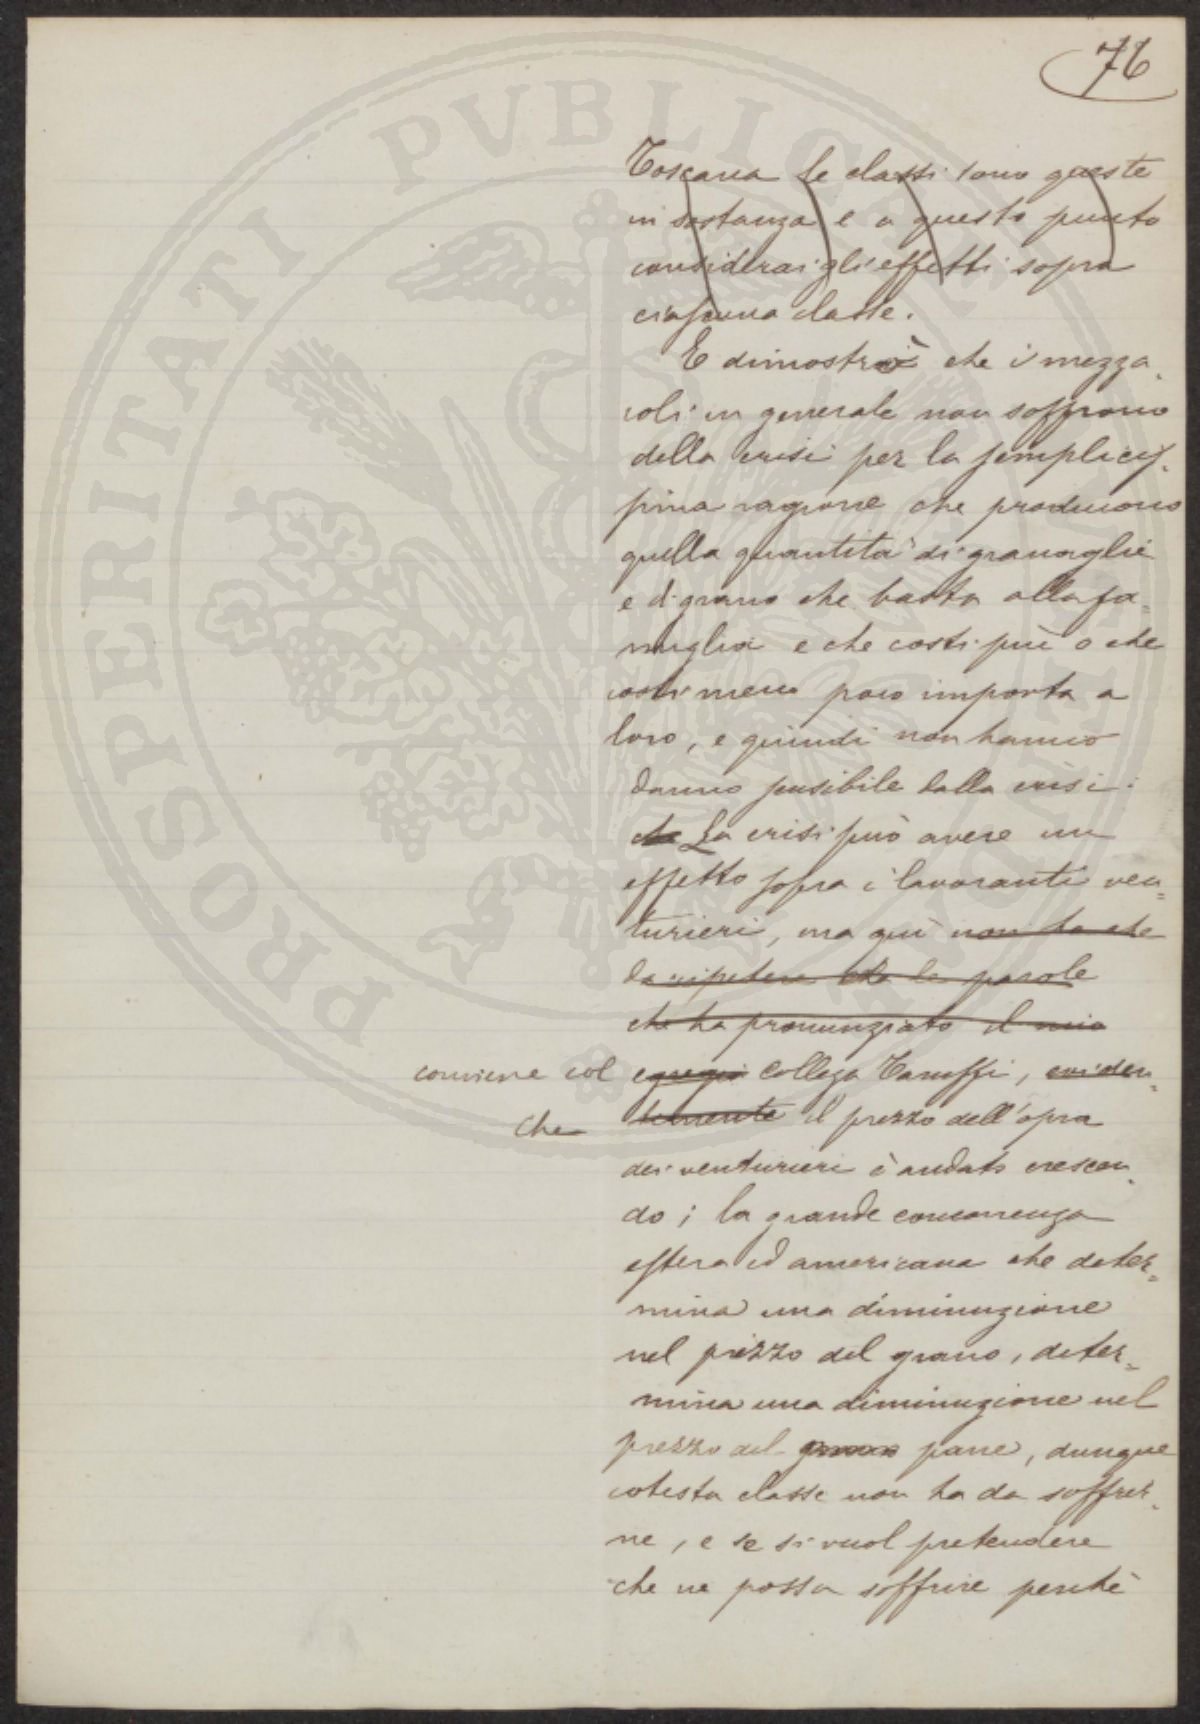 76
Toscana le classi sono queste
in sostanza e a questo punto
considerai gli effetti sopra
ciascuna classe.
E dimostrò che i mezza-
ioli in generale non soffrono
della crisi per la semplicis-
sima ragione che producono
quella quantità di granaglie
e di grano che basta alla fa-
miglia e che costi più o che
costi meno poco importa a
loro, e quindi non hanno
danno sensibile dalla crisi.
che La crisi può avere un
effetto sopra i lavoranti ven=
turieri, ma qui non ho che
da ripetere che le parole
che ha pronunziato il mio
conviene col egregio Collega Taruffi, eviden=
che temente il prezzo dell'opra
dei venturieri è andato crescen-
do; la grande concorrenza
estera ed americana che deter=
mina una diminuzione
nel prezzo del grano, deter=
mina una diminuzione nel
prezzo del grano pane, dunque
cotesta classe non ha da soffrir-
ne, e se si vuol pretendere
che ne possa soffrire perchè
PROSPERITATI PVBLICAE